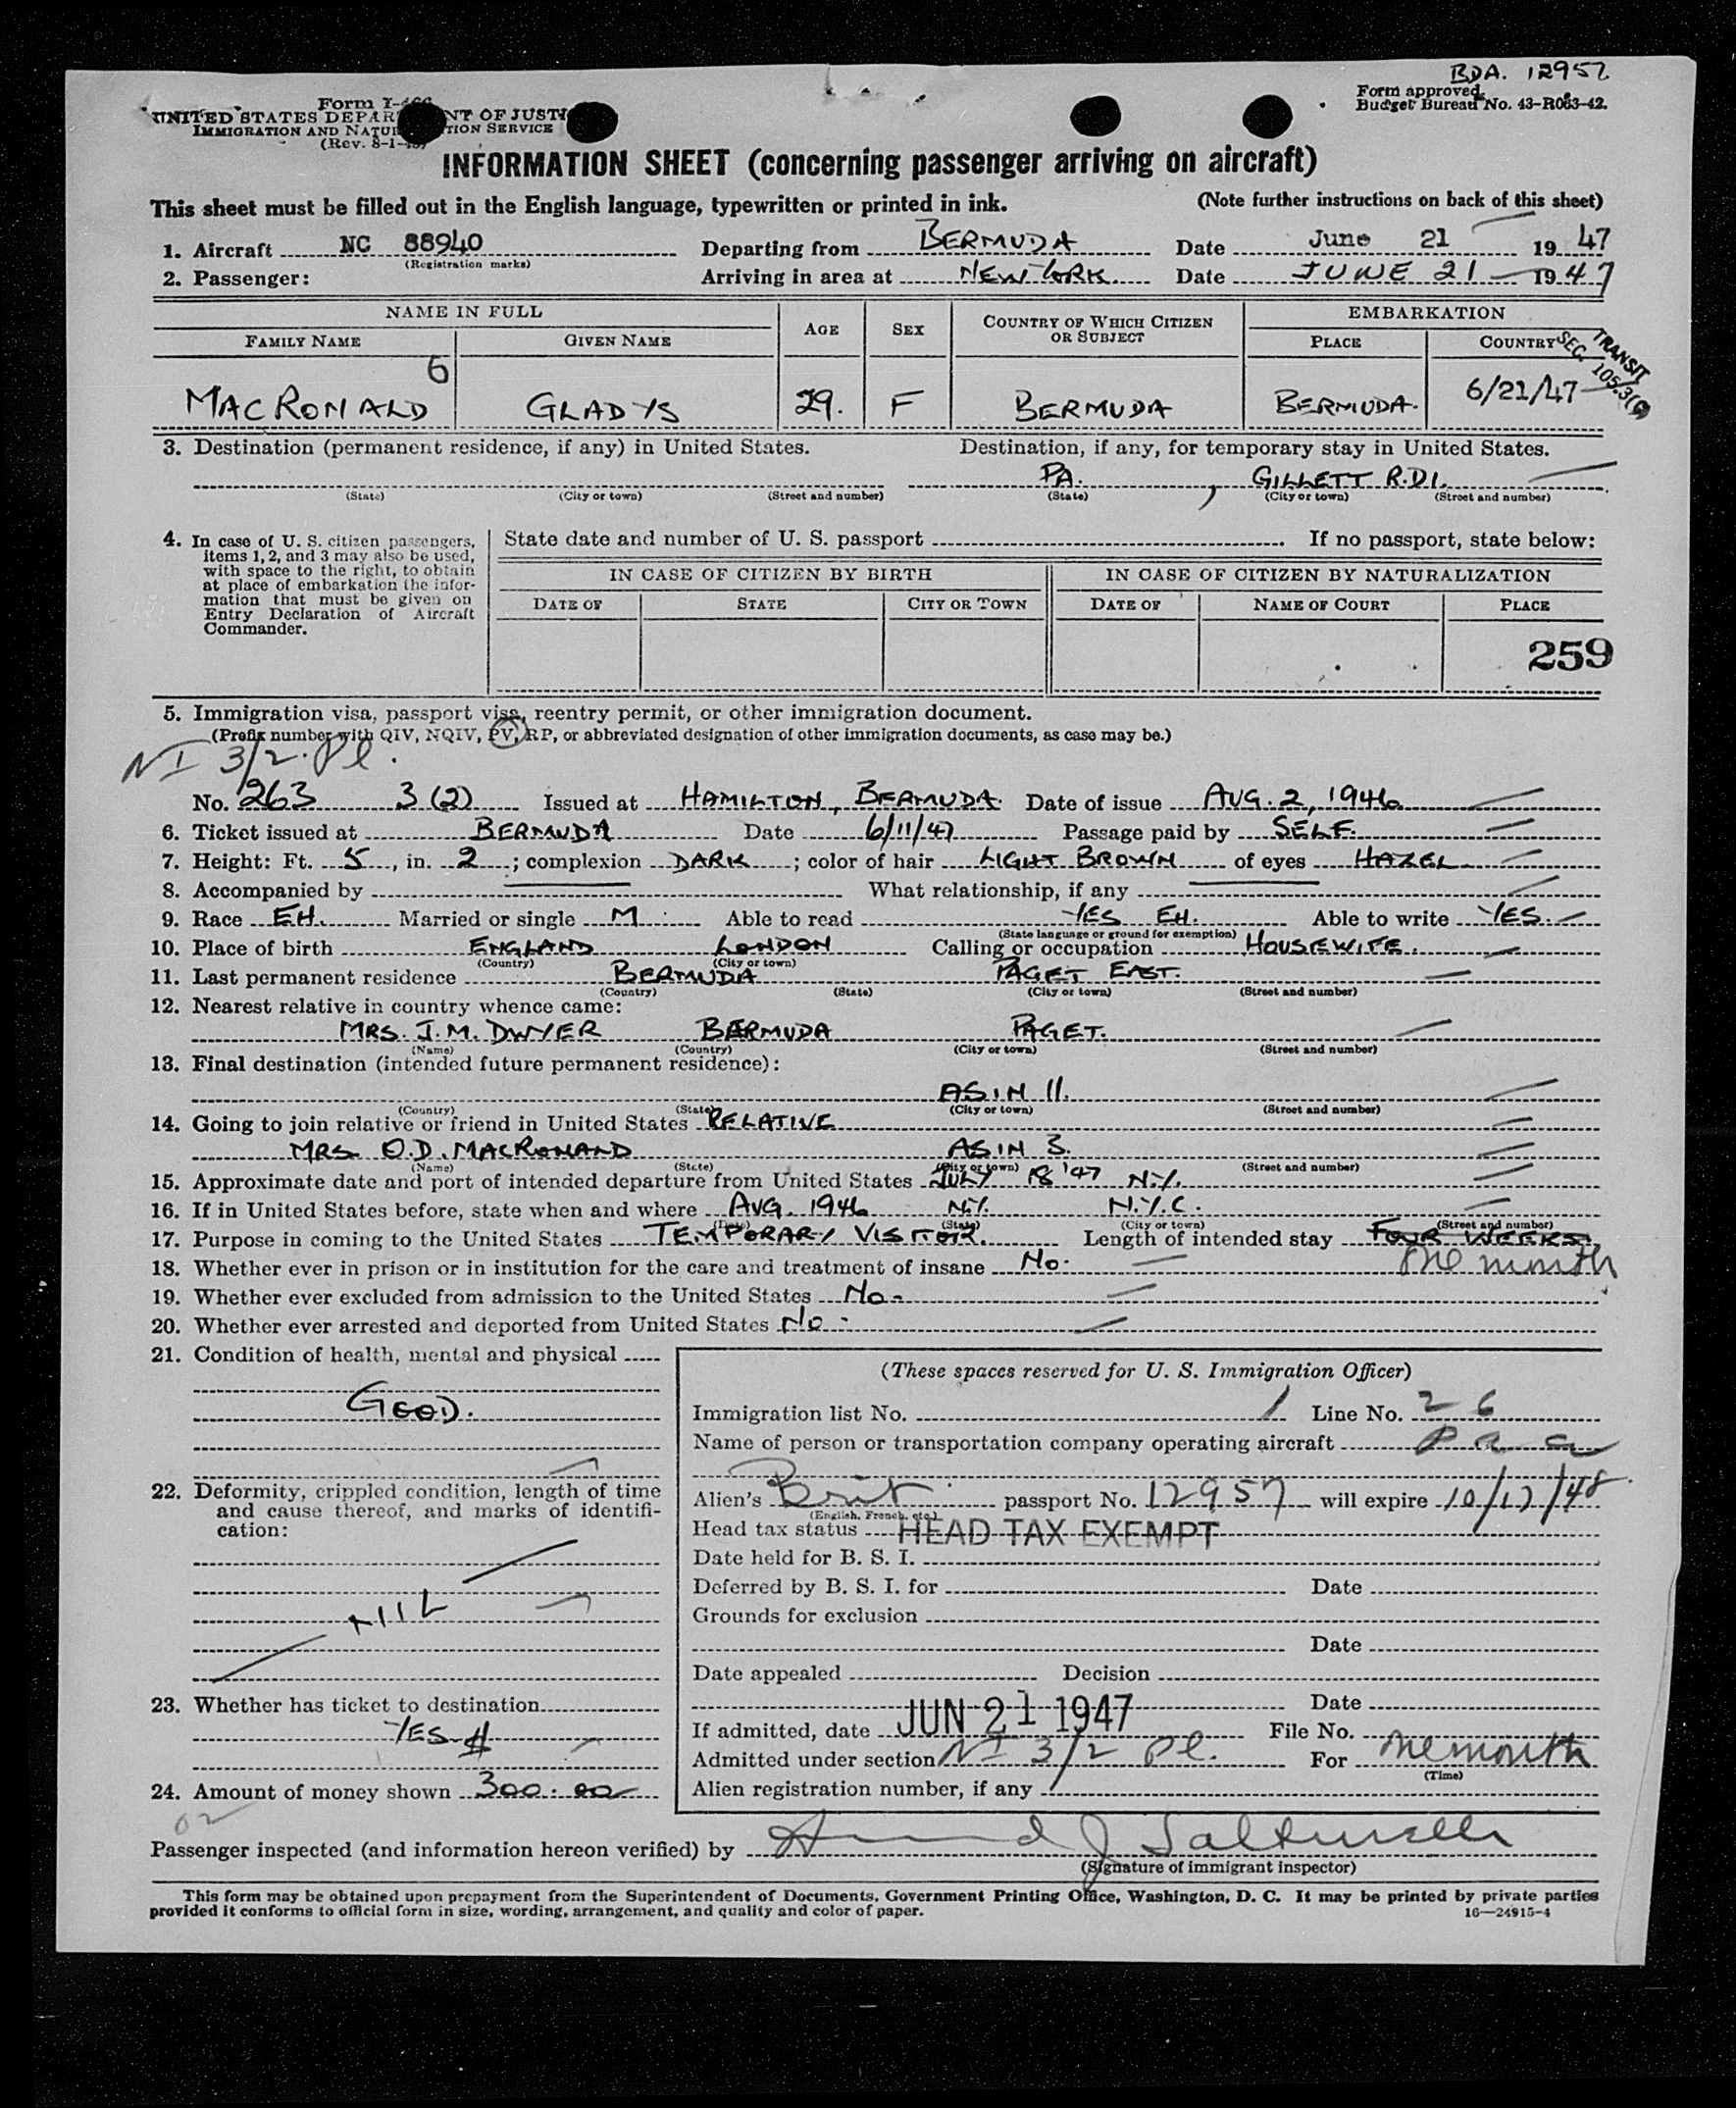 BDA. 12957
Form approved.
Budget Bureau No. 43-R063-42.
Form I-466
UNITED STATES DEPARTMENT OF JUSTICE
IMMIGRATION AND NATURALIZATION SERVICE
(Rev. 8-1-45)
INFORMATION SHEET (concerning passenger arriving on aircraft)
This sheet must be filled out in the English language, typewritten or printed in ink. (Note further instructions on back of this sheet)
1. Aircraft NC 88940 Departing from BERMUDA Date June 21 1947
(Registration marks)
2. Passenger: Arriving in area at NEW YORK. Date JUNE 21 1947
NAME IN FULL AGE SEX COUNTRY OF WHICH CITIZEN OR SUBJECT EMBARKATION
FAMILY NAME GIVEN NAME PLACE COUNTRY
TRANSIT
SEC. 105.3(c)
6
MACRONALD GLADYS 29. F BERMUDA BERMUDA. 6/21/47
3. Destination (permanent residence, if any) in United States. Destination, if any, for temporary stay in United States.
PA. , GILLETT R.D1.
(State) (City or town) (Street and number) (State) (City or town) (Street and number)
4. In case of U. S. citizen passengers, items 1, 2, and 3 may also be used, with space to the right, to obtain at place of embarkation the information that must be given on Entry Declaration of Aircraft Commander.
State date and number of U. S. passport If no passport, state below:
IN CASE OF CITIZEN BY BIRTH IN CASE OF CITIZEN BY NATURALIZATION
DATE OF STATE CITY OR TOWN DATE OF NAME OF COURT PLACE
259
5. Immigration visa, passport visa, reentry permit, or other immigration document.
(Prefix number with QIV, NQIV, PV, RP, or abbreviated designation of other immigration documents, as case may be.)
NI 3/2. Pl.
No. 263 3 (2) Issued at HAMILTON, BERMUDA Date of issue AUG. 2, 1946
6. Ticket issued at BERMUDA Date 6/11/47 Passage paid by SELF.
7. Height: Ft. 5, in. 2; complexion DARK; color of hair LIGHT BROWN of eyes HAZEL
8. Accompanied by What relationship, if any
9. Race EH. Married or single M Able to read YES EH. Able to write YES.
(State language or ground for exemption)
10. Place of birth ENGLAND LONDON Calling or occupation HOUSEWIFE.
(Country) (City or town)
11. Last permanent residence BERMUDA PAGET EAST.
(Country) (State) (City or town) (Street and number)
12. Nearest relative in country whence came:
MRS. J.M. DWYER BERMUDA PAGET.
(Name) (Country) (City or town) (Street and number)
13. Final destination (intended future permanent residence):
AS IN 11.
(Country) (State) (City or town) (Street and number)
14. Going to join relative or friend in United States RELATIVE
MRS O.D. MACRONALD AS IN 3.
(Name) (State) (City or town) (Street and number)
15. Approximate date and port of intended departure from United States JULY 18 '47 N.Y.
16. If in United States before, state when and where AUG. 1946 N.Y. N.Y.C.
(Date) (State) (City or town) (Street and number)
17. Purpose in coming to the United States TEMPORARY VISITOR. Length of intended stay FOUR WEEKS
One month
18. Whether ever in prison or in institution for the care and treatment of insane No.
19. Whether ever excluded from admission to the United States No.
20. Whether ever arrested and deported from United States No
21. Condition of health, mental and physical
GOOD.
22. Deformity, crippled condition, length of time and cause thereof, and marks of identification:
NIIL
23. Whether has ticket to destination
YES
24. Amount of money shown $ 300.00
(These spaces reserved for U. S. Immigration Officer)
Immigration list No. 1 Line No. 26
Name of person or transportation company operating aircraft P a a
Alien's Brit passport No. 12957 will expire 10/17/48
(English, French, etc.)
Head tax status HEAD TAX EXEMPT
Date held for B. S. I.
Deferred by B. S. I. for Date
Grounds for exclusion
Date
Date appealed Decision
Date
If admitted, date JUN 21 1947 File No.
Admitted under section NI 3/2 Pl. For One month
(Time)
Alien registration number, if any
Passenger inspected (and information hereon verified) by
(Signature of immigrant inspector)
This form may be obtained upon prepayment from the Superintendent of Documents, Government Printing Office, Washington, D. C. It may be printed by private parties
provided it conforms to official form in size, wording, arrangement, and quality and color of paper. 16—24915-4